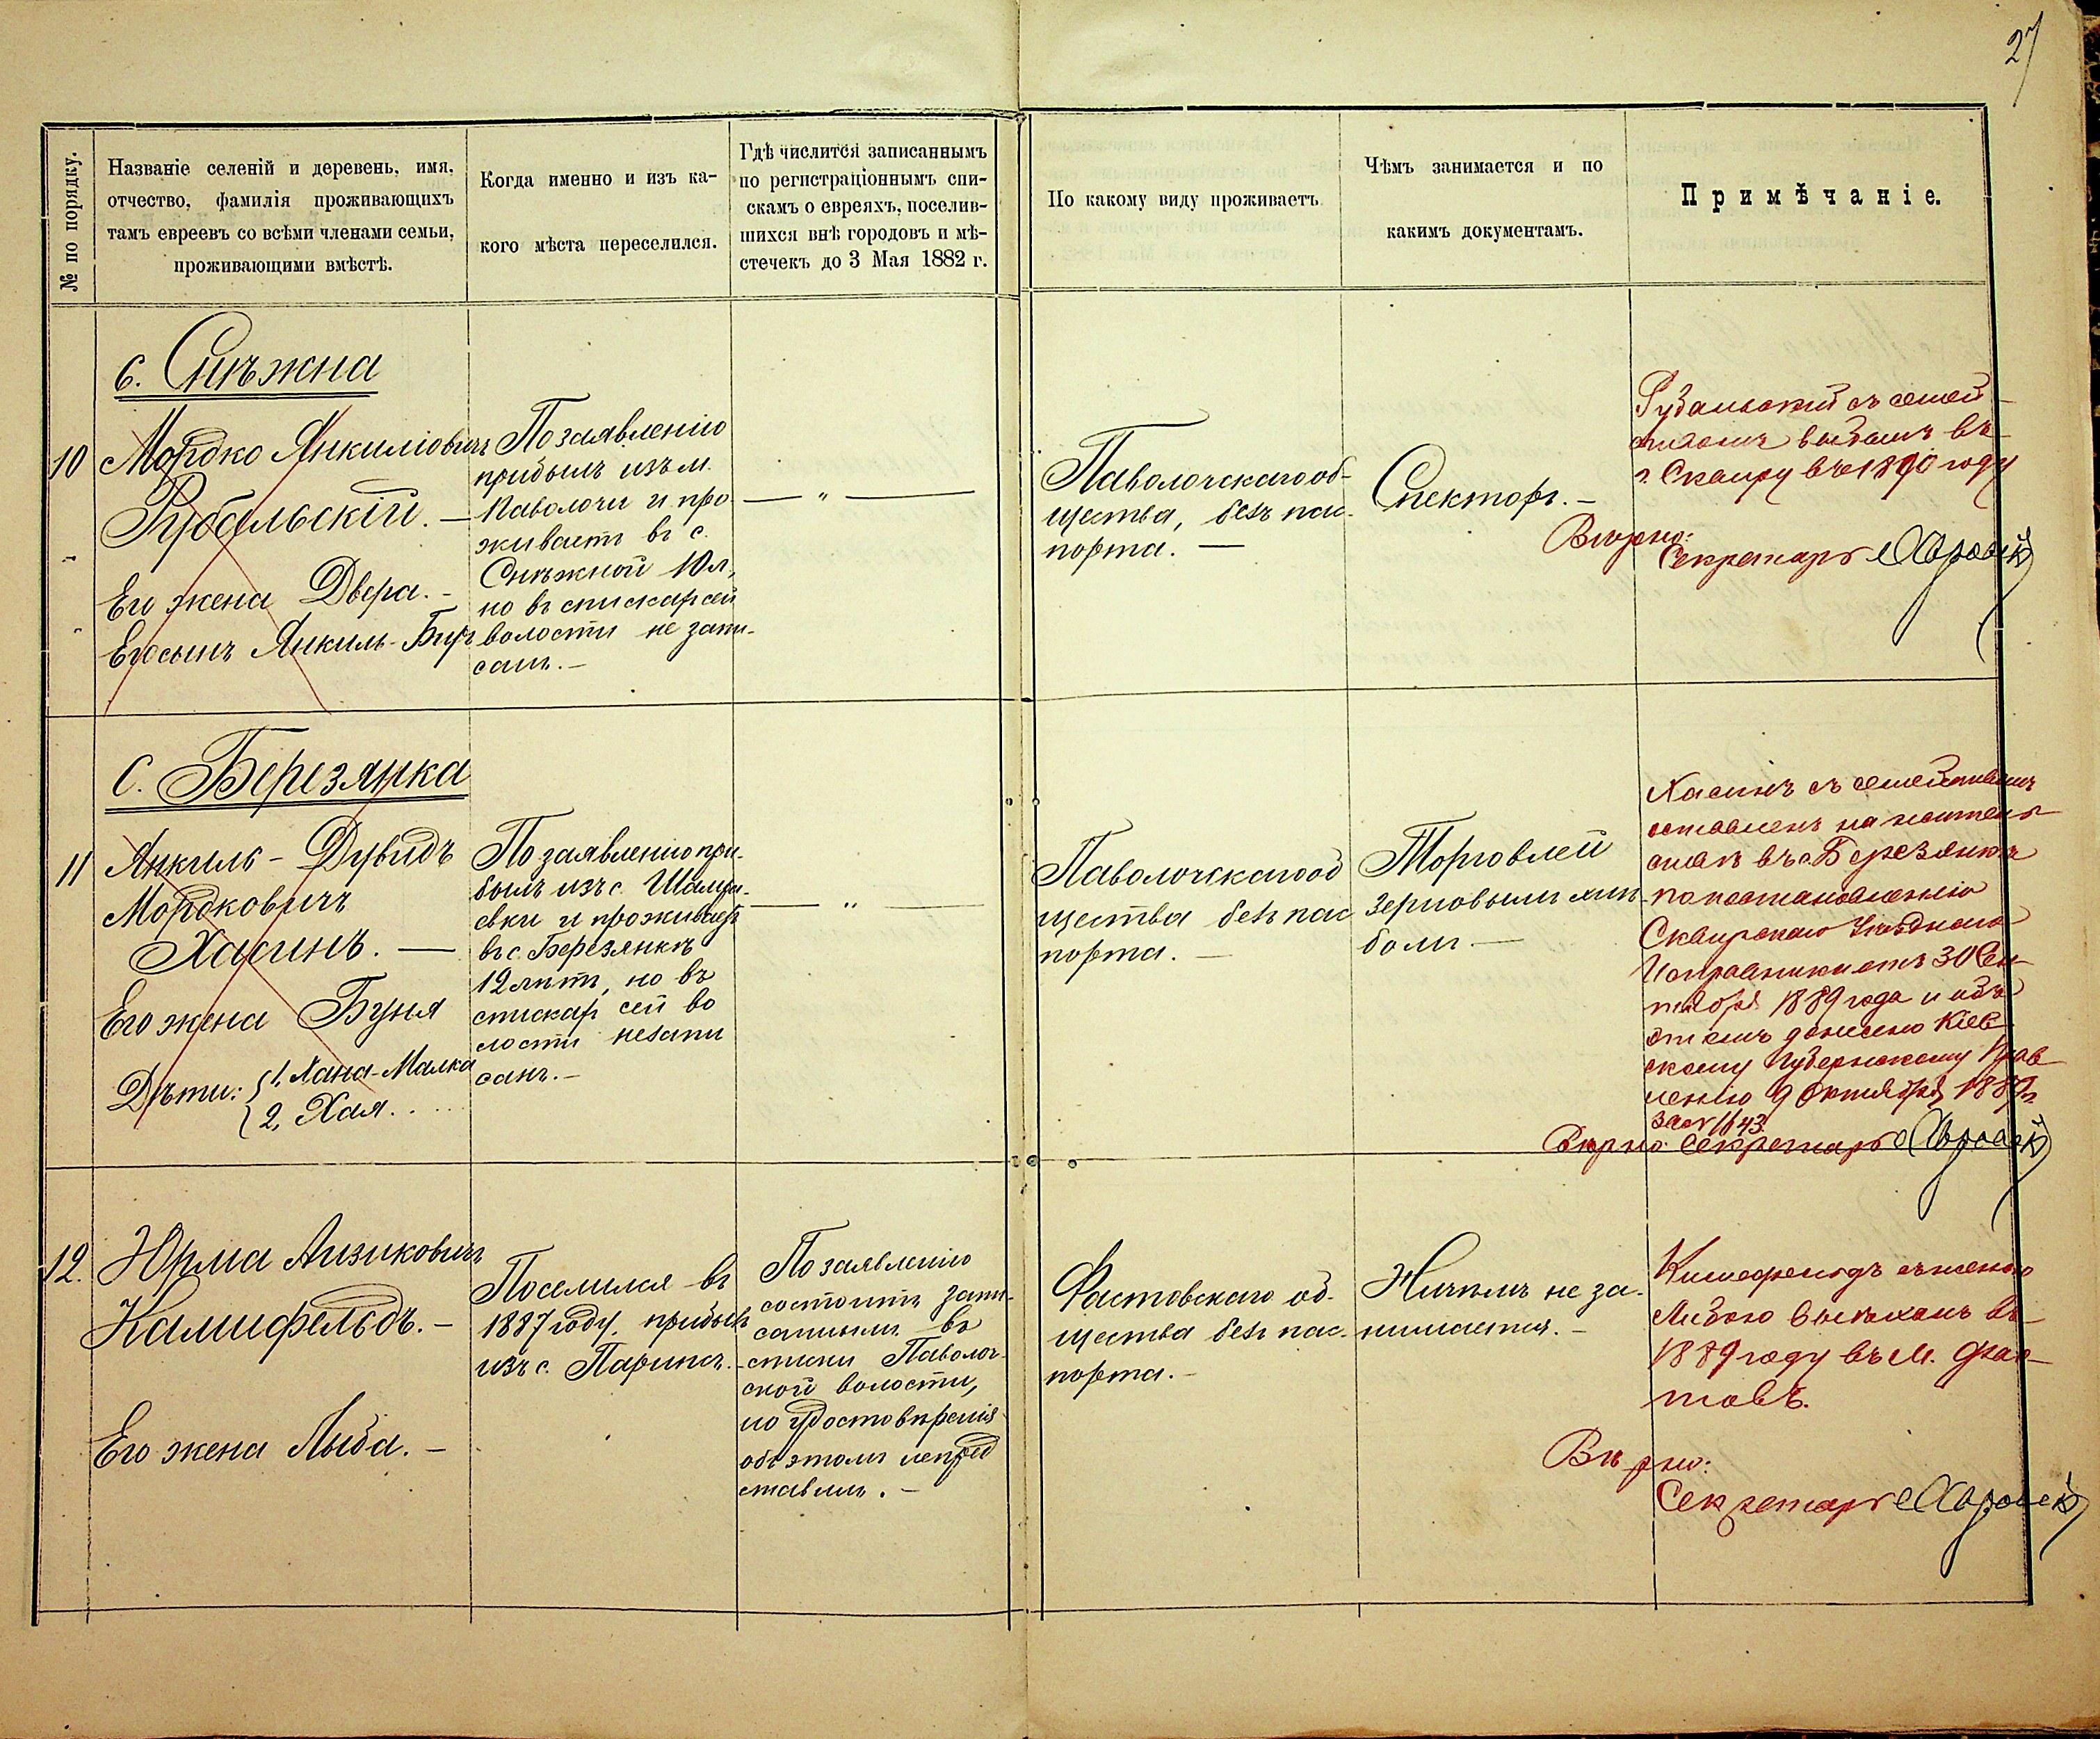 27
№ по порядку.
Названіе селеній и деревень, имя,
отчество, фамилія проживающихъ
тамъ евреевъ со всѣми членами семьи,
проживающими вмѣстѣ.
Когда именно и изъ ка-
кого мѣста переселился.
Гдѣ числится записаннымъ
по регистраціоннымъ спи-
скамъ о евреяхъ, поселив-
шихся внѣ городовъ и мѣ-
стечекъ до 3 Мая 1882 г.
По какому виду проживаетъ
Чѣмъ занимается и по
какимъ документамъ.
Примѣчаніе.
с. Снѣжна
10
Мордко Янкиліовичъ
Рубальскій. —
Его жена Двера. -
Его сынъ Янкиль-Бир
По заявленію
прибылъ изъ м.
Паволочи и про-
живаетъ въ с.
Снѣжной 10 л,
но въ спискахъ сей
волости не запи-
санъ. —
— " —
Паволочскаго об-
щества, безъ пас-
порта. —
Спекторъ. —
Рубальскій съ семей-
ствомъ выбылъ въ
г. Сквиру въ 1890 году
Вѣрно:
Секретарь
с. Березянка
11
Янкиль - Дувидъ
Мордковичъ
Хасинъ. —
Его жена Буня
Дѣти: 1, Хана-Малка
2, Хая. . .
По заявленію при-
былъ изъ с. Шамра-
евки и проживаетъ
въ с. Березянкѣ
12 лѣтъ, но въ
спискахъ сей во
лости незапи
санъ. —
— " —
Паволочскаго об
щества безъ пас
порта. —
Торговлей
зерновымъ хлѣ-
бомъ —
Хасинъ съ семействомъ
оставленъ на жительст-
въ с. Березянкѣ
по постановленію
Сквирскаго Уѣзднаго
Исправника отъ 30 Сен-
тября 1889 года и объ
этомъ донесено Кіев-
скому Губернскому Прав-
ленію 9 Октября 1889 г.
за № 1143.
Вѣрно: Секретарь
12.
Юрма Аизиковичъ
Камифельдъ. —
Его жена Лыба. —
Поселился въ
1887 году, прибывъ
изъ с. Парипсъ. -
По заявленію
состоитъ запи-
саннымъ въ
списки Паволоч-
ской волости,
но удостовѣренія
объ этомъ непред
ставилъ. —
Фастовскаго об-
щества безъ пас-
порта. -
Ничѣмъ не за-
нимается. —
съ женою
Либою выѣхалъ въ
1889 году въ м. Фас-
товъ.
Вѣрно:
Секретарь